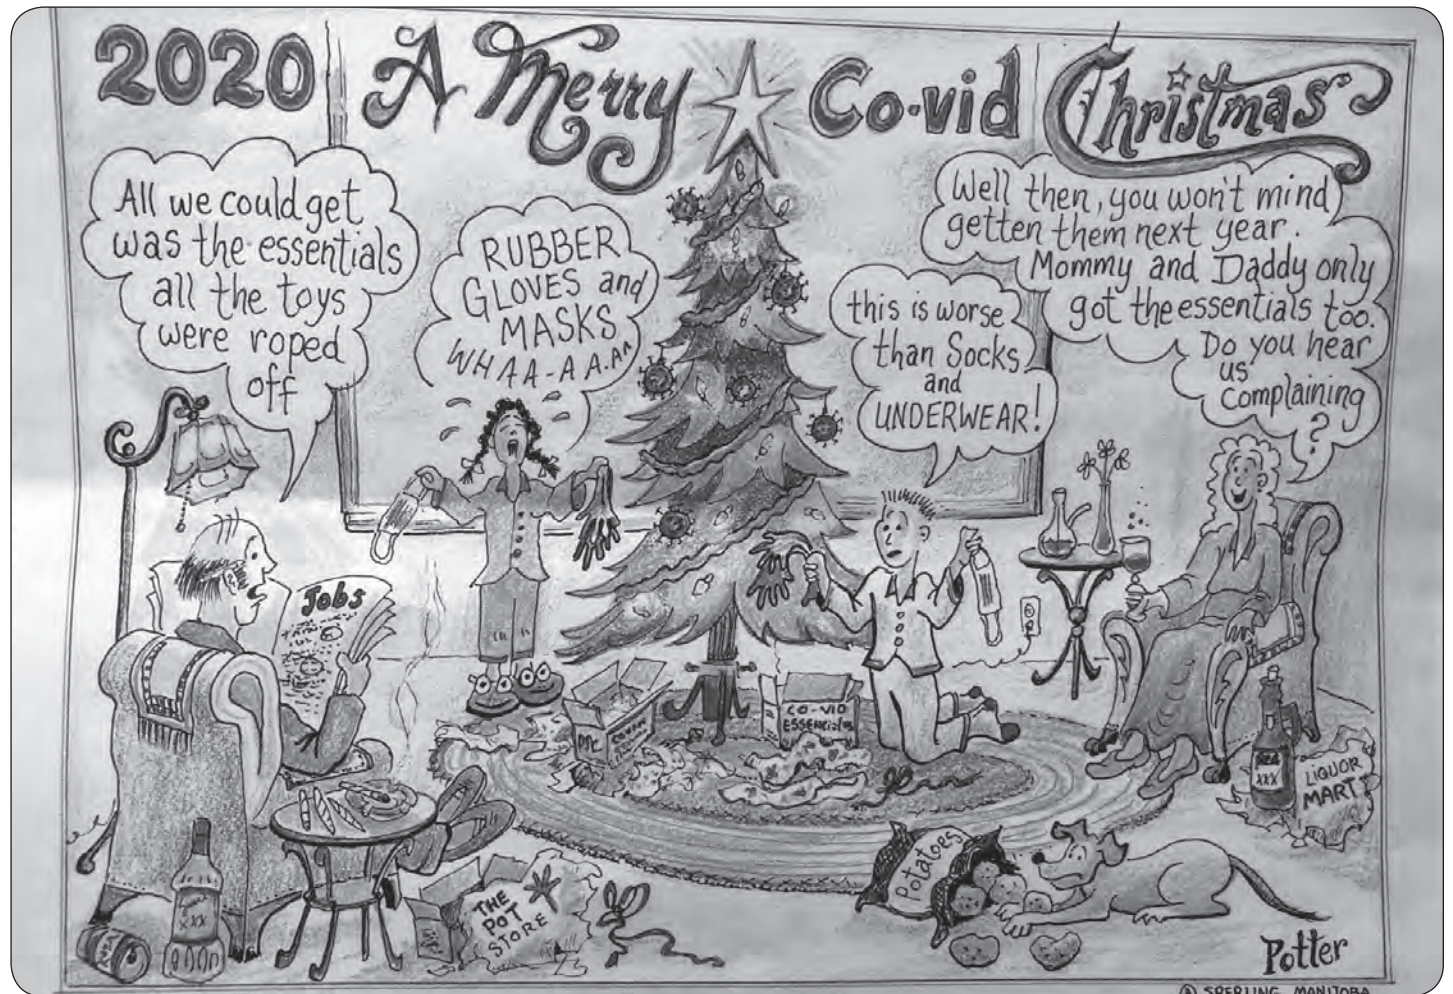 2020 A Merry Co-vid Christmas
All we could get
was the essentials
all the toys
were roped
off
RUBBER
GLOVES and
MASKS
WHAA-AA.AA
this is worse
than Socks
and
UNDERWEAR!
Well then, you won't mind
getten them next year.
Mommy and Daddy only
got the essentials too.
Do you hear
us
complaining
?
Jobs
CO-VID
ESSENCIALS
Red
XXX
LIQUOR
MART
Potatoes
XXX
THE
POT
STORE
Potter
SPERLING MANITOBA